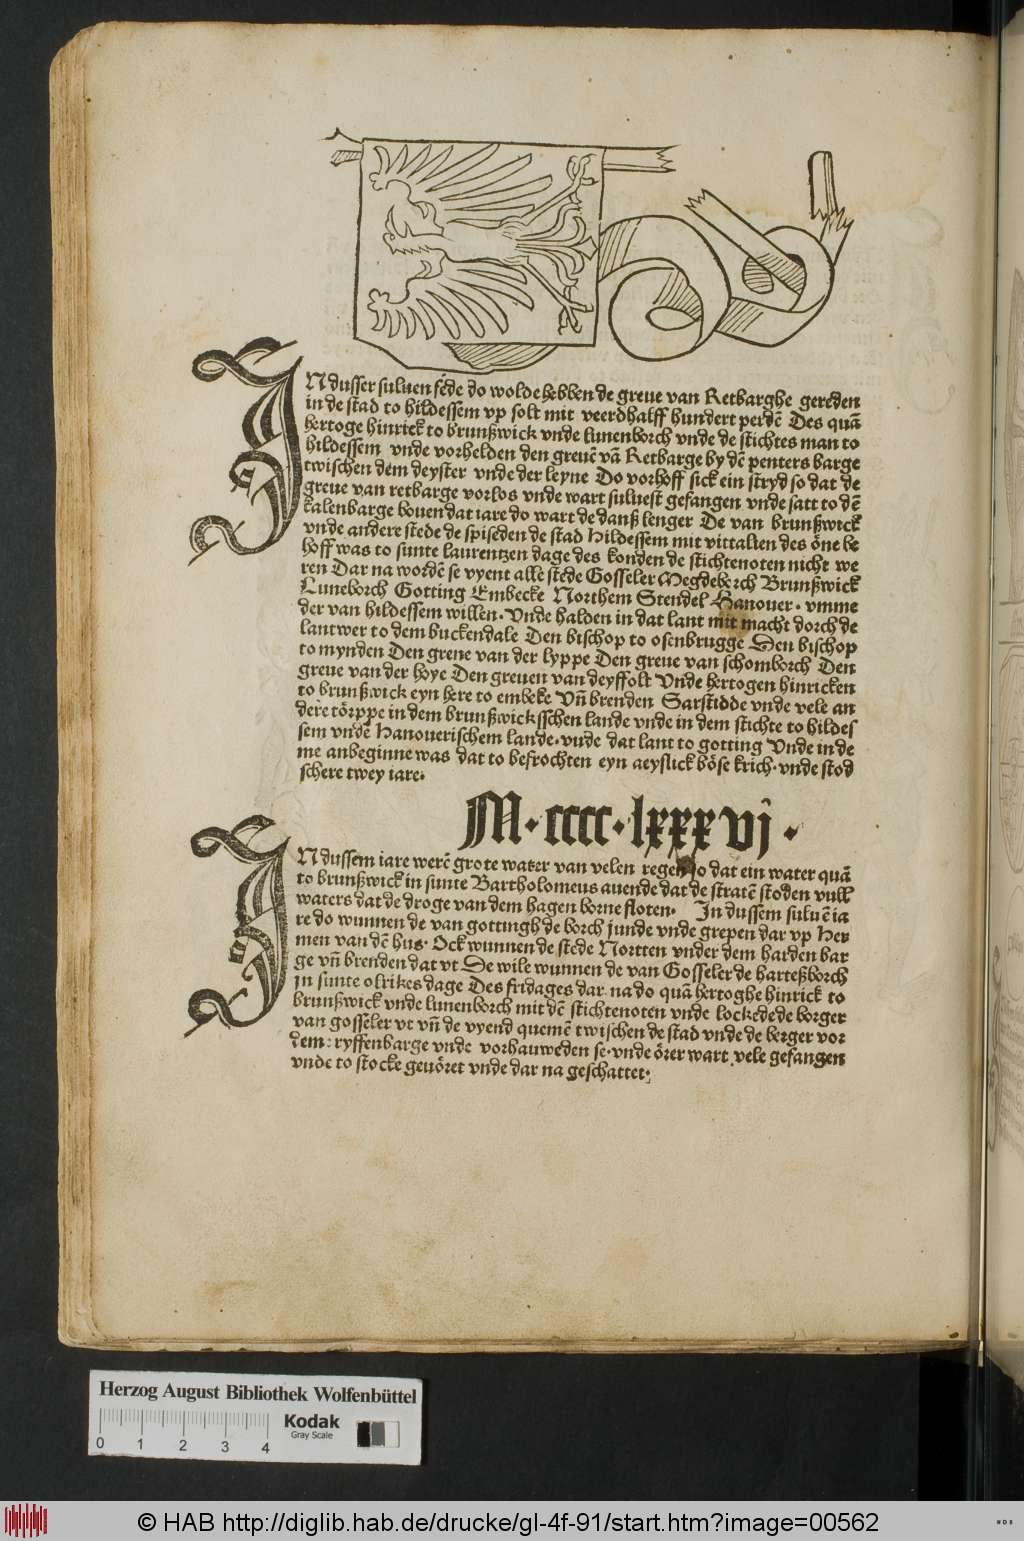 IN dusser suluen fede do wolde hebben de greue van Retbarghe gereden
in de stad to hildessem vp solt mit veerdhalff hundert perdē Des quā
hertoge hinrick to brunßwick vnde lunenborch vnde de stichtes man to
hildessem vnde vorhelden den greuē vā Retbarge by dē penters barge
twischen dem deyster vnde der leyne Do vorhoff sick ein stryd so dat de
greue van retbarge vorlos vnde wart suluest gefangen vnde satt to dē
kalenbarge bouen dat iare do wart de danß lenger De van brunßwick
vnde andere stede de spiseden de stad Hildessem mit vittalien des öne be
hoff was to sunte laurentzen dage des konden de stichtenoten nicht we
ren Dar na wordē se vyent alle stede Gosseler Megdeborch Brunßwick
Luneborch Gotting Embecke Northem Stendel Hanouer · vmme
der van hildessem willen · Vnde halden in dat lant mit macht dorch de
lantwer to dem buckendale Den bischop to osenbrugge Den bischop
to mynden Den greue van der lyppe Den greue van schomborch Den
greue van der hoye Den greuen van deyffolt Vnde hertogen hinricken
to brunßwick eyn here to embeke Vñ brenden Sarstidde vnde vele an
dere törppe in dem brunßwicksschen lande vnde in dem stichte to hildes
sem vndē Hanouerischem lande · vnde dat lant to gotting Vnde in de
me anbeginne was dat to befrochten eyn aeyslick böse krich · vnde stod
schere twey iare ·
M · cccc · lxxxvj ·
IN dussem iare werē grote water van velen regen so dat ein water quā
to brunßwick in sunte Bartholomeus auende dat de stratē stoden vull
waters dat de droge van dem hagen borne floten · In dussem suluē ia
re do wunnen de van gottingh de borch junde vnde grepen dar vp Her
men van dē hus · Ock wunnen de stede Nortten vnder dem harden bar
ge vñ brenden dat vt De wile wunnen de van Gosseler de harteßborch
jn sunte olrikes dage Des fridages dar na do quā hertoghe hinrick to
brunßwick vnde lunenborch mit dē stichtenoten vnde lockedede borger
van gosseler vt vñ de vyend quemē twischen de stad vnde de berger vor
dem : ryffenbarge vnde vorhauweden se · vnde örer wart vele gefangen
vnde to stocke geuöret vnde dar na geschattet ·
Herzog August Bibliothek Wolfenbüttel
0 1 2 3 4
Kodak
Gray Scale
© HAB http://diglib.hab.de/drucke/gl-4f-91/start.htm?image=00562
WDB